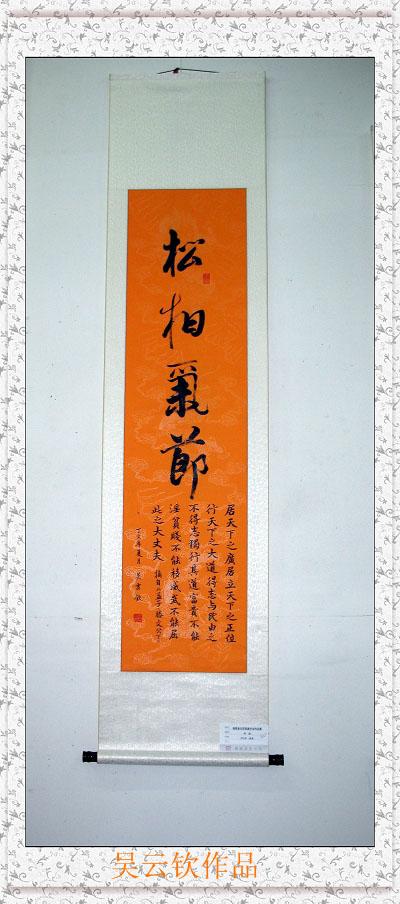 松柏氣節
居天下之廣居立天下之正位
行天下之大道得志与民由之
不得志獨行其道富貴不能
淫貧賤不能移威武不能屈
此之大丈夫 摘自《孟子·滕文公下》
丁亥年夏月吳雲欽
吴云钦作品